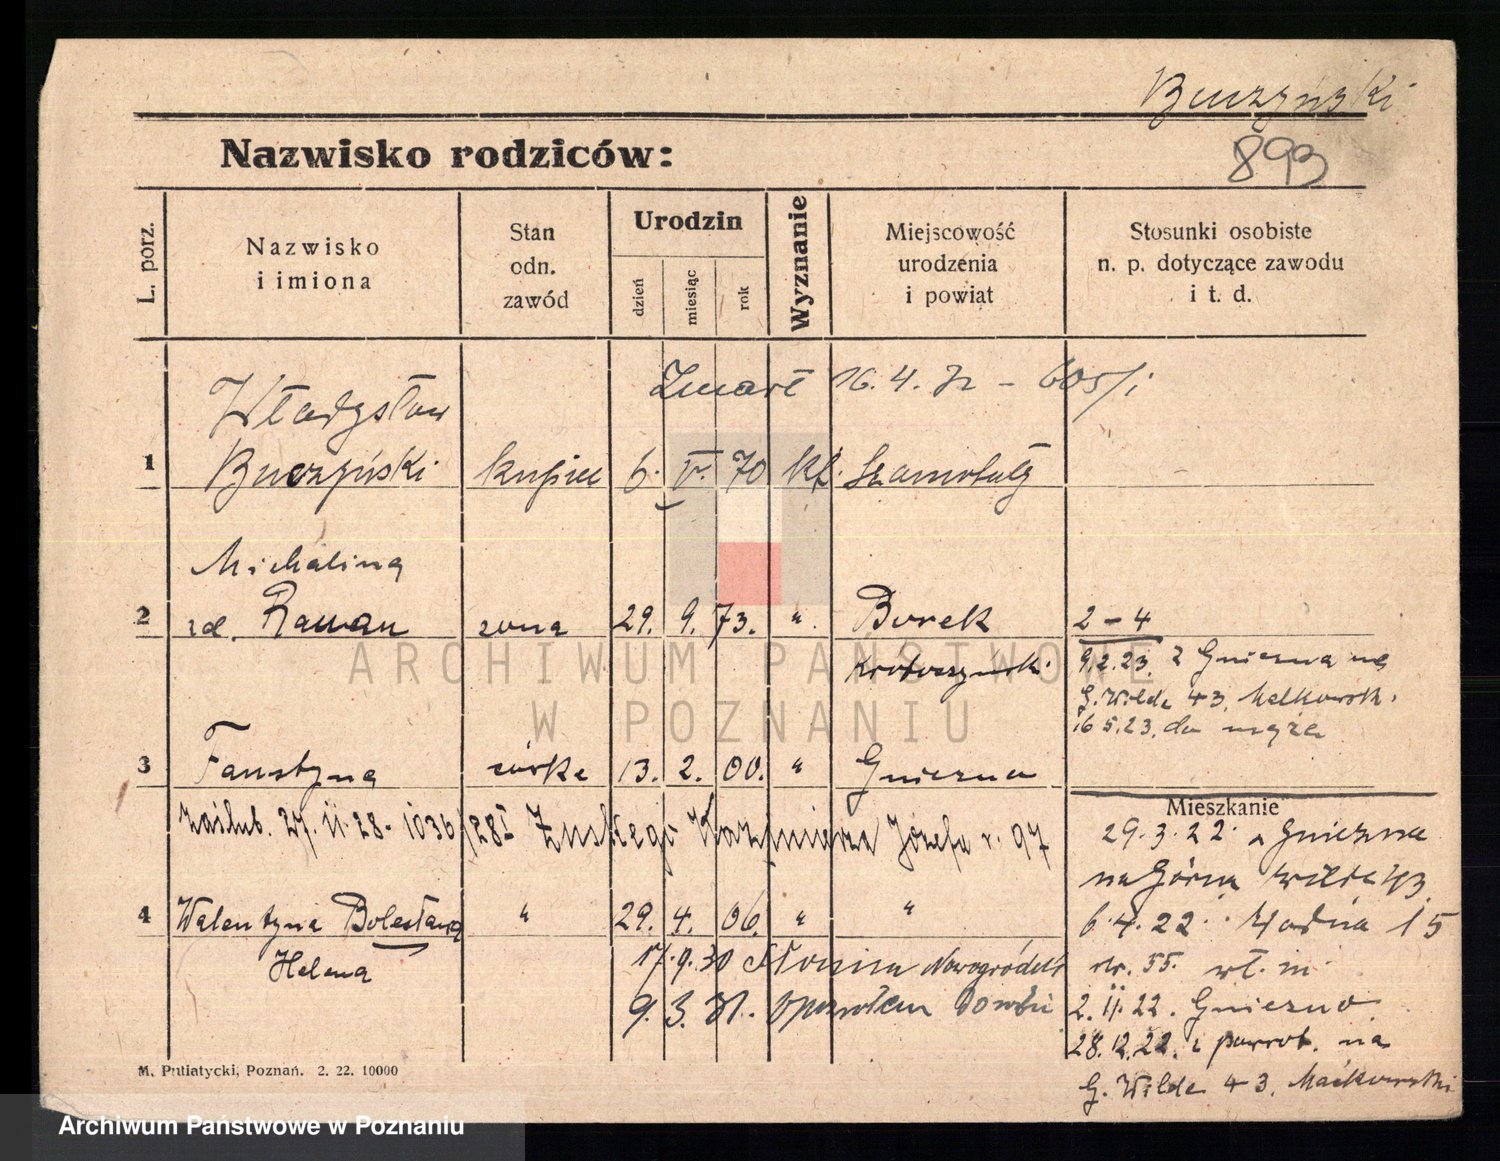 Buczyński
893
Nazwisko rodziców:
L. porz.
Nazwisko
i imiona
Stan
odn.
zawód
Urodzin
dzień
miesiąc
rok
Wyznanie
Miejscowość
urodzenia
i powiat
Stosunki osobiste
n. p. dotyczące zawodu
i t. d.
Zmarł 16.4.32 – 605/i
Władysław
1 Buczyński kupiec 6. V. 70 kł. Szamotuły
Michalina
2 zd. Rauau żona 29. 9. 73. " Borek 2 – 4
Krotoszyńsk. 9.2.23. z Gniezna na
G. Wilda 43, Malkowsk.
16 5.23. do męża
3 Faustyna córka 13. 2. 00. " Gniezno
Mieszkanie
zaślub. 27.11.28. 1036/28I Żuskego Kazimierza Józefa r. 97
29.3.22. z Gniezna
na Górna Wilda 43
4 Walentyna Bolesława " 29. 4. 06. " "
6.4.22. Wodna 15
Helena
17.9.30 Słonim Nowogródek
str. 55. wł. m.
9. 3. 31.
2.11.22. Gniezno
28.12.22. z powrot. na
G. Wilda 43, Maćkowski
M. Putiatycki, Poznań. 2. 22. 10000
ARCHIWUM PAŃSTWOWE
W POZNANIU
Archiwum Państwowe w Poznaniu